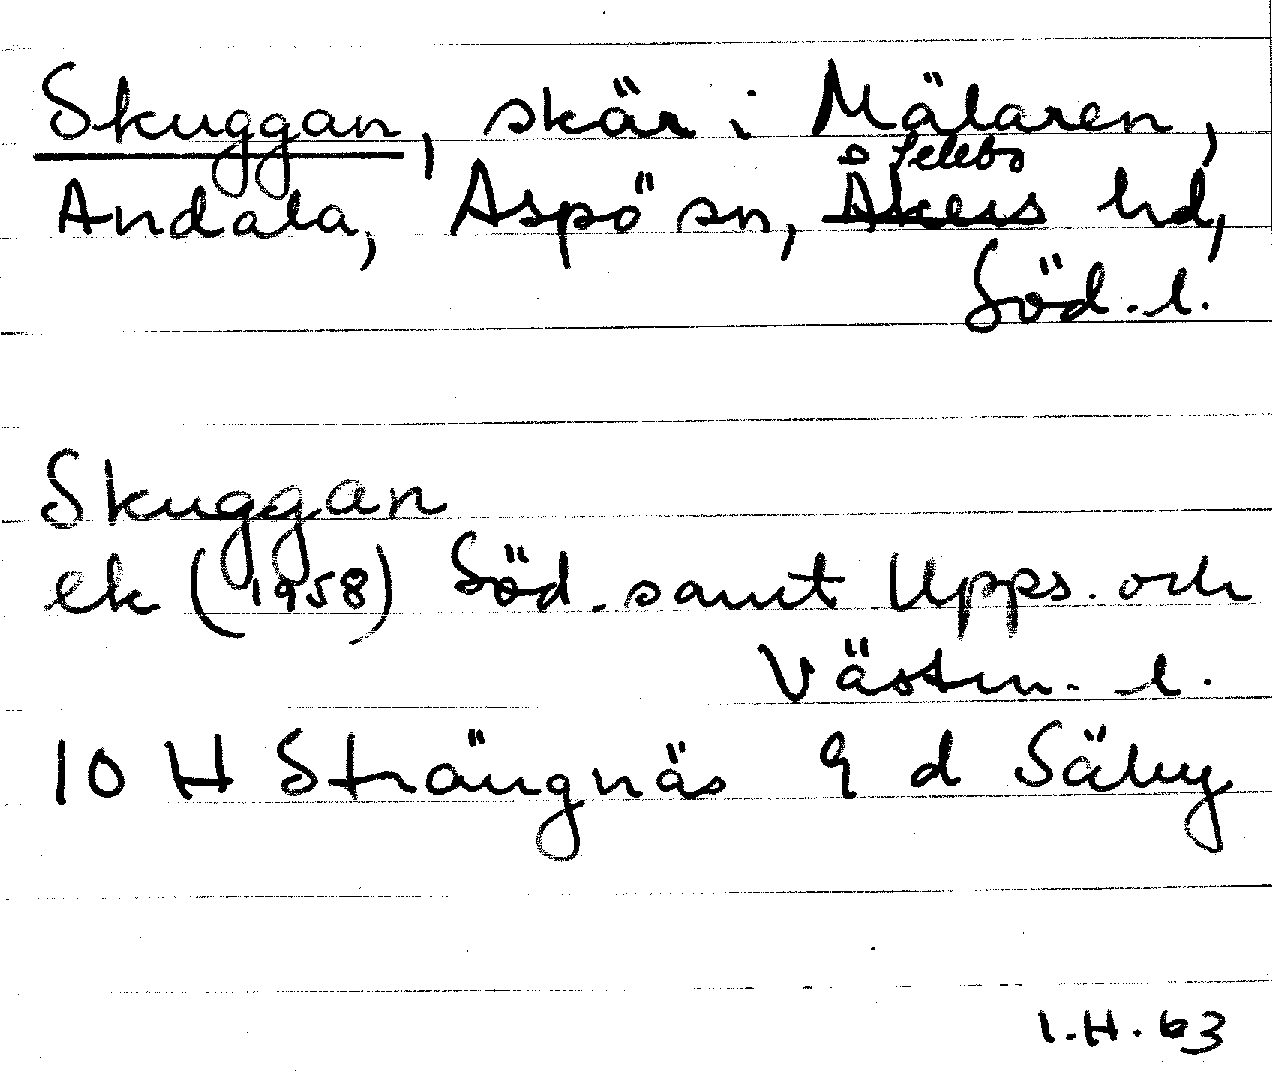 Skuggan, skär i Mälaren,
Andala, Aspö sn, Åkers Selebo hd,
Söd. l.
Skuggan
ek (1958) Söd. samt Upps. och
Västm. l.
10 H Strängnäs 9 d Säby
I.H. 63